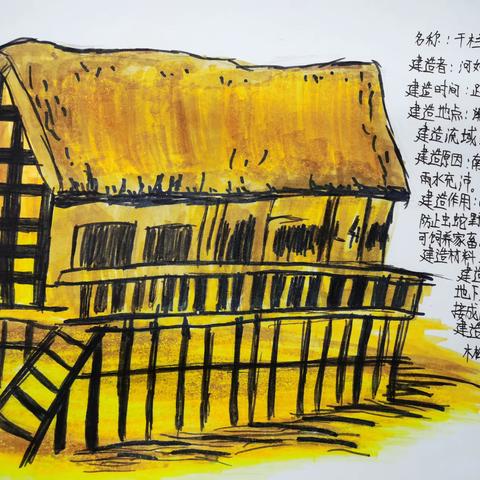 名称：干栏
建造者：河姆
建造时间：距
建造地点：
建造流域
建造原因：南
雨水充沛。
建造作用：
防止虫蛇野
可饲养家畜
建造材料
建造
地下
接成
建造
木